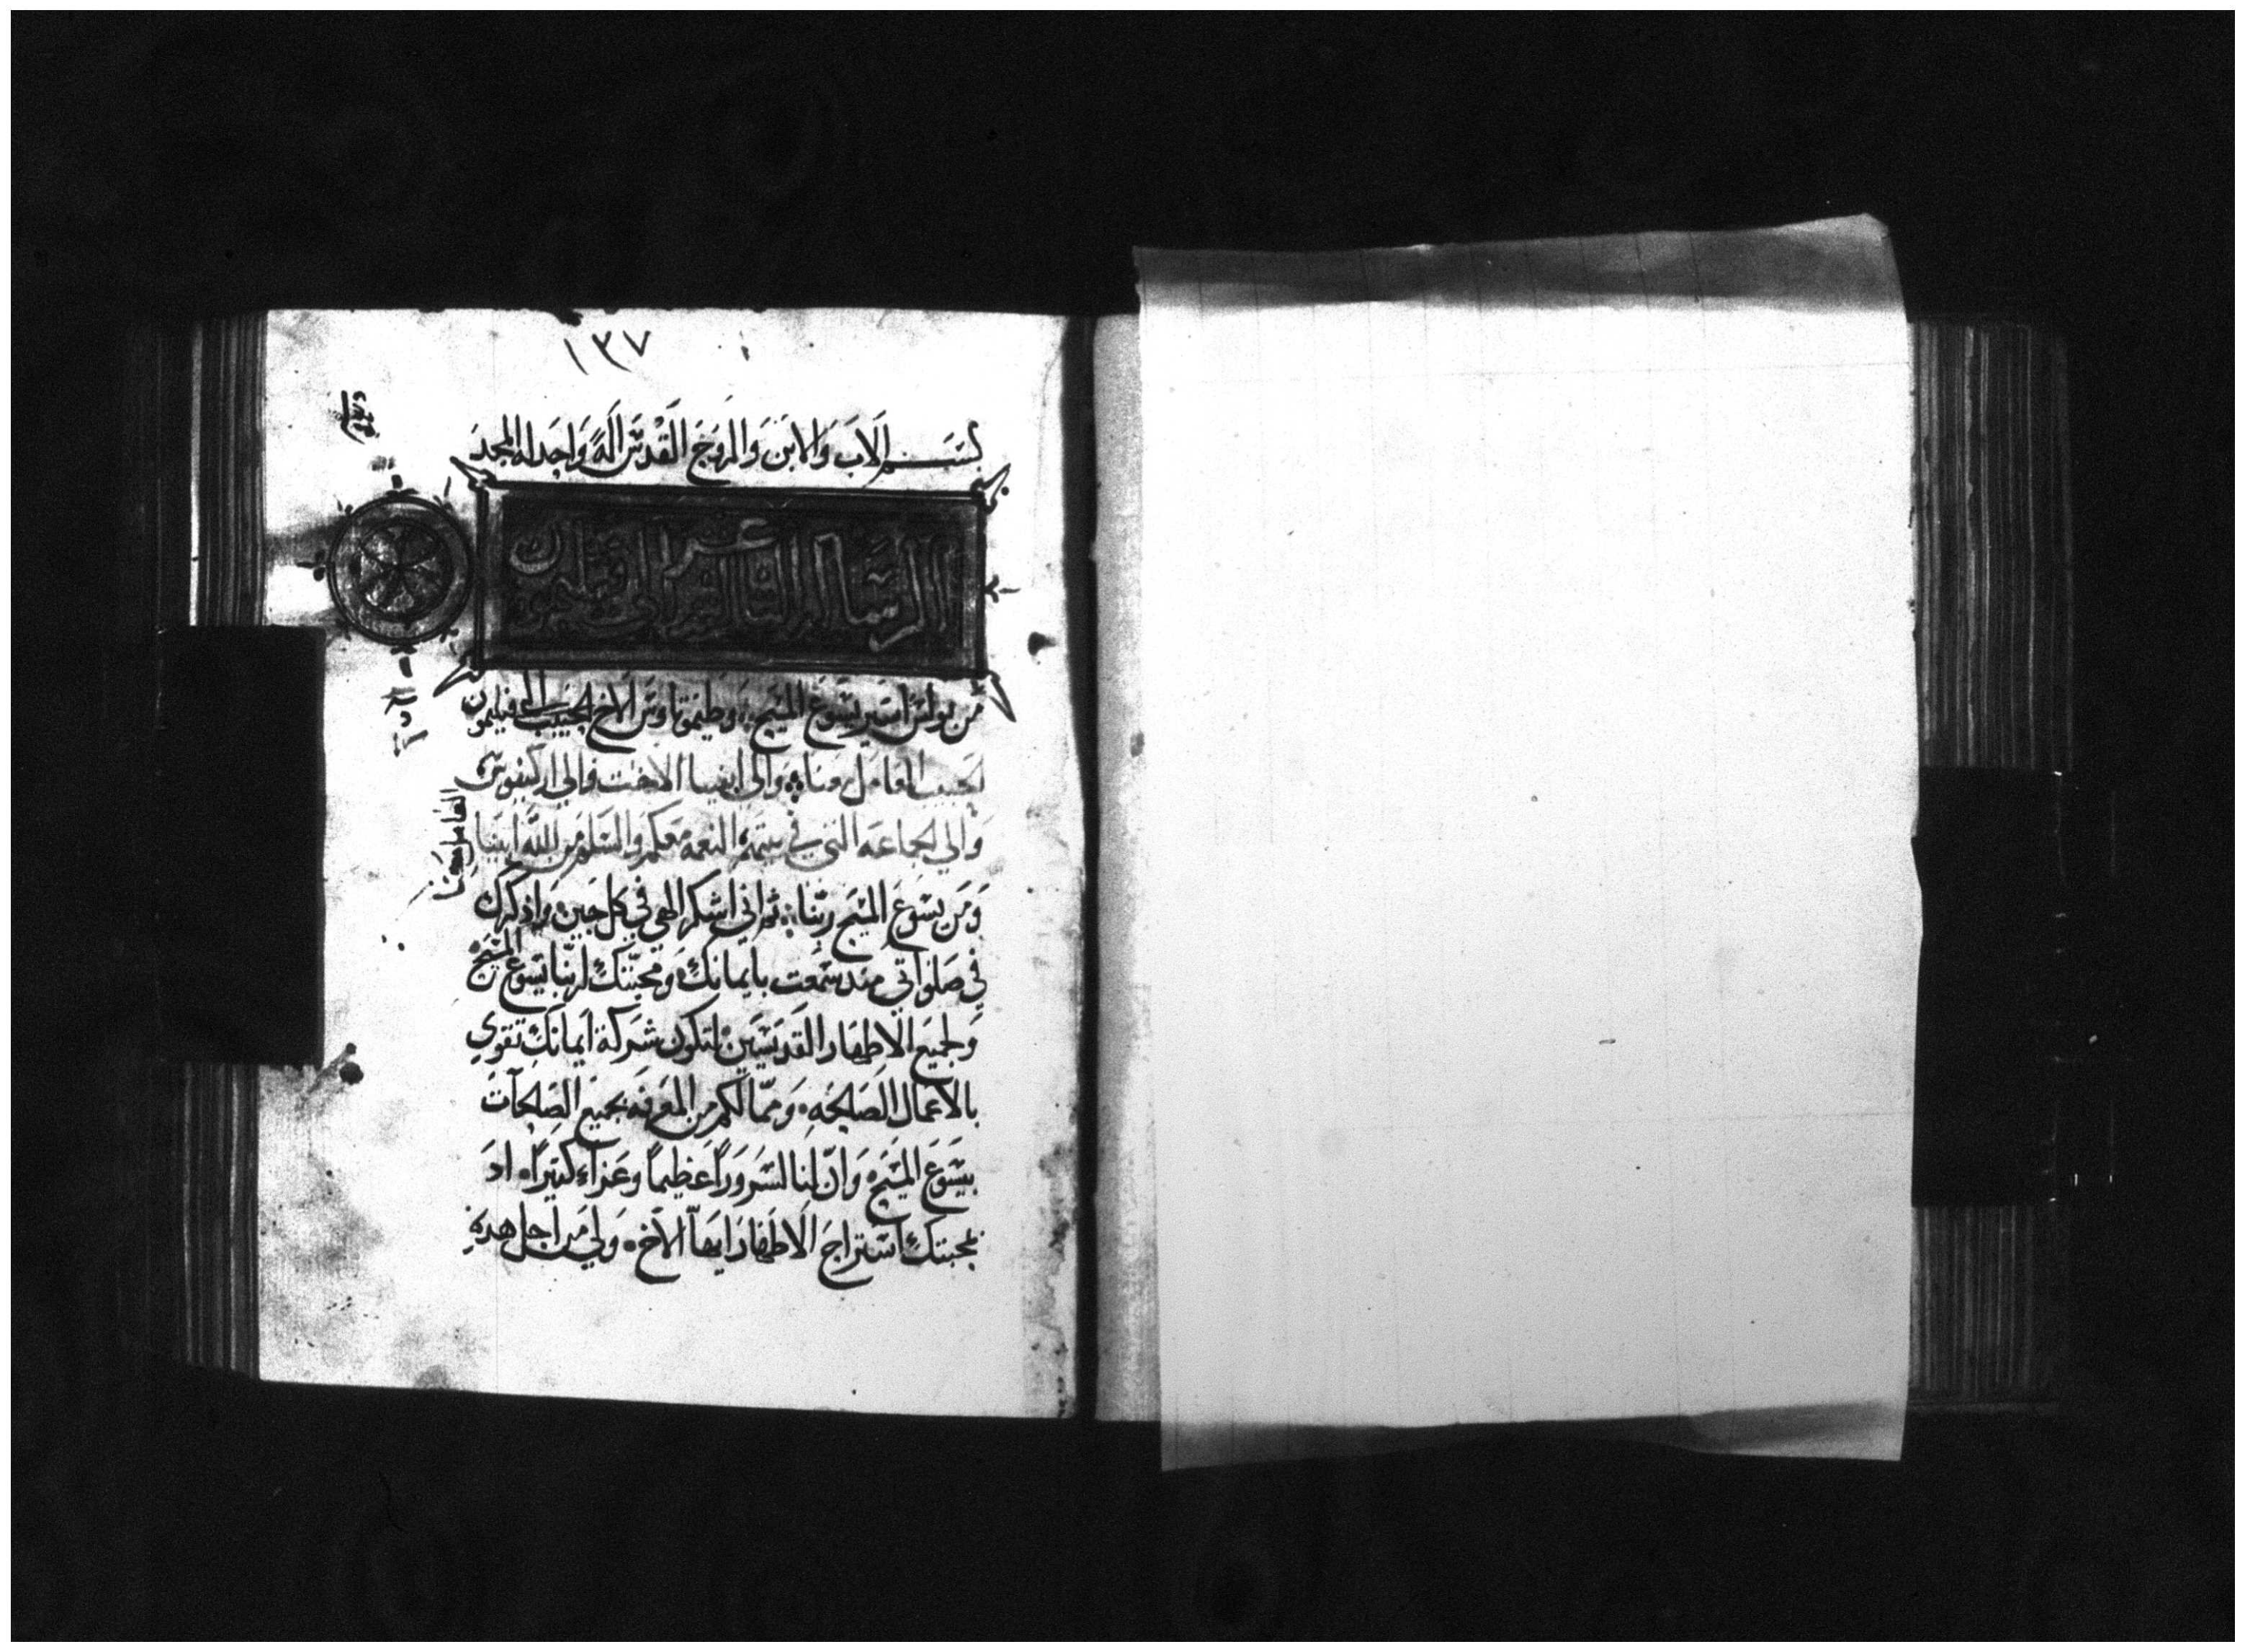 ١٣٧
بسم الاب والابن والروح القدس اله واحد له المجد
الرساله الثالثه عشر الى فيليمون
من بولس اسير يسوع المسيح وطيموتاوس الاخ الى الحبيب فيليمون
الحبيب العامل معنا والى ابفيا الاخت والي اركيفوس
العامل معنا
والي الجماعه التي في بيته النعمه معكم والسلم من الله ابينا
ومن يسوع المسيح ربنا ثم اني اشكر الهي في كل حين واذكرك
في صلواتي منذ سمعت بايمانك ومحبتك لربنا يسوع المسيح
ولجميع الاطهار القديسين لتكون شركة ايمانك تقوي
بالاعمال الصالحه ومما لكم من المعرفه بجميع الصالحات
بيسوع المسيح وان لنا لسروراً عظيماً وعزاء كثيراً اد
بمحبتك استراح الاطهار ايها الاخ ولي من اجل هده